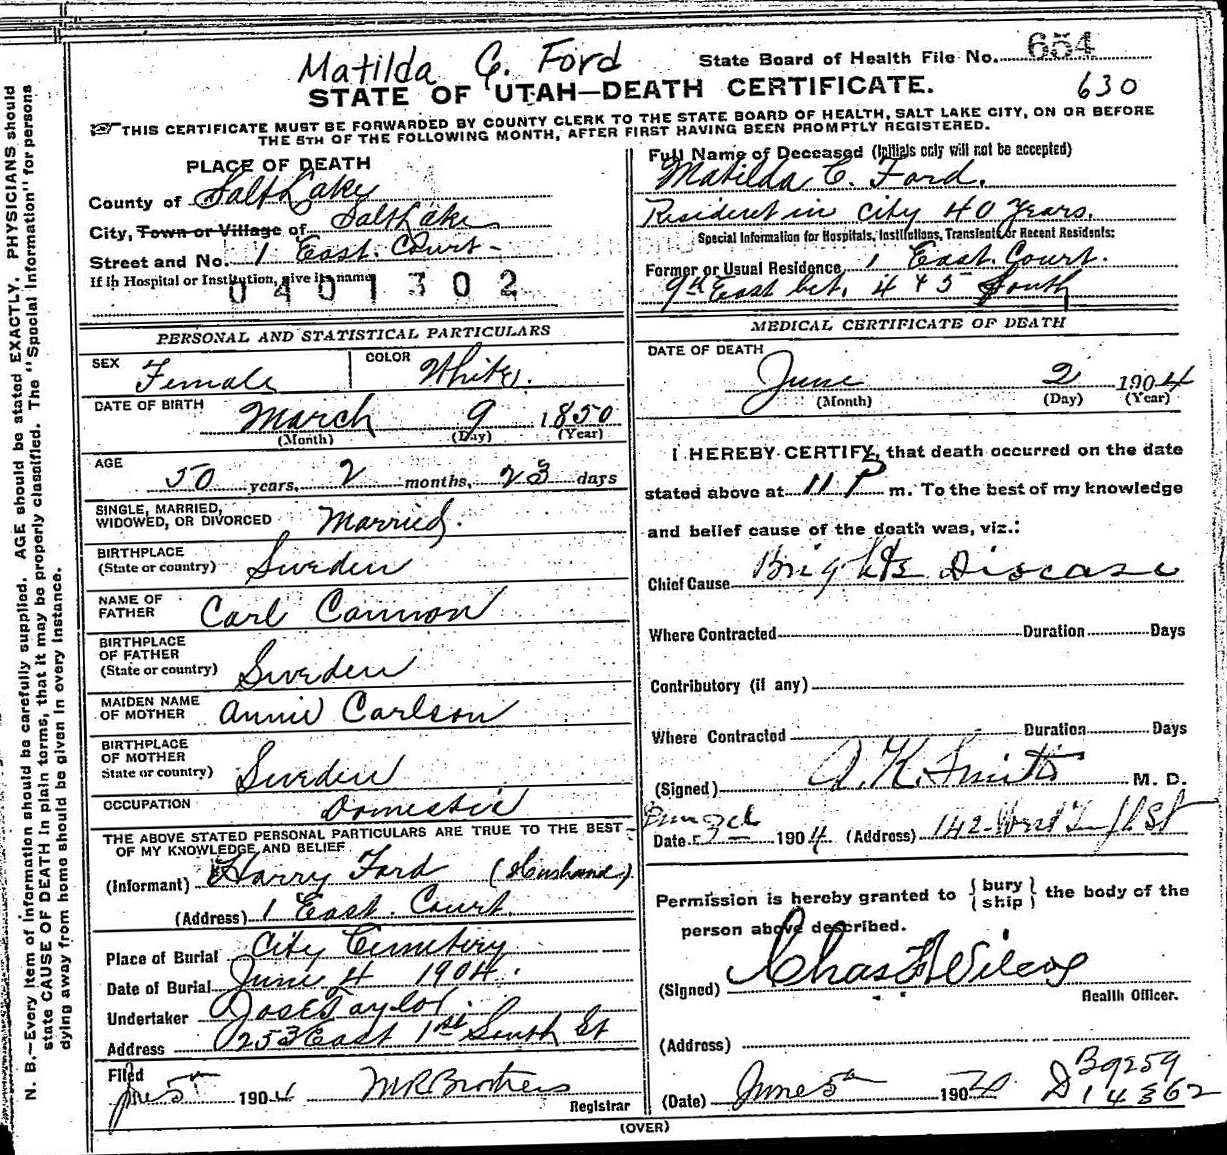 Matilda C. Ford
State Board of Health File No. 654
STATE OF UTAH—DEATH CERTIFICATE.
630
THIS CERTIFICATE MUST BE FORWARDED BY COUNTY CLERK TO THE STATE BOARD OF HEALTH, SALT LAKE CITY, ON OR BEFORE
THE 5TH OF THE FOLLOWING MONTH, AFTER FIRST HAVING BEEN PROMPTLY REGISTERED.
PLACE OF DEATH
County of Salt Lake
City, Town or Village of Salt Lake
Street and No. 1 East. Court -
If in Hospital or Institution, give its name
0401302
Full Name of Deceased (Initials only will not be accepted)
Matilda C. Ford.
Resident in city 40 Years.
Special Information for Hospitals, Institutions, Transients or Recent Residents:
Former or Usual Residence 1 East. Court.
9th East bet. 4 & 5 South
PERSONAL AND STATISTICAL PARTICULARS
SEX Female COLOR White.
DATE OF BIRTH March 9 1850
(Month) (Day) (Year)
AGE
50 years, 2 months, 23 days
SINGLE, MARRIED,
WIDOWED, OR DIVORCED Married.
BIRTHPLACE
(State or country) Sweden
NAME OF
FATHER Carl Cannon
BIRTHPLACE
OF FATHER
(State or country) Sweden
MAIDEN NAME
OF MOTHER Annie Carlson
BIRTHPLACE
OF MOTHER
State or country) Sweden
OCCUPATION Domestic
THE ABOVE STATED PERSONAL PARTICULARS ARE TRUE TO THE BEST
OF MY KNOWLEDGE AND BELIEF
(Informant) Harry Ford (Husband)
(Address) 1 East. Court.
Place of Burial City Cemetery
Date of Burial June 4 1904.
Undertaker Jos E Taylor.
Address 253 East 1st South St
Filed
June 5th 1904 M R Brothers
Registrar
MEDICAL CERTIFICATE OF DEATH
DATE OF DEATH
June 2 1904
(Month) (Day) (Year)
I HEREBY CERTIFY, that death occurred on the date
stated above at 11 P m. To the best of my knowledge
and belief cause of the death was, viz.:
Chief Cause Brights Disease
Where Contracted Duration Days
Contributory (if any)
Where Contracted Duration Days
(Signed) M. D.
Date 1904 (Address) 142 West St
Permission is hereby granted to { bury
ship } the body of the
person above described.
(Signed) Chas F Wilcox
Health Officer.
(Address)
(Date) June 5th 190
B9259
D 14862
(OVER)
N. B.—Every item of information should be carefully supplied. AGE should be stated EXACTLY. PHYSICIANS should
state CAUSE OF DEATH in plain terms, that it may be properly classified. The "Special Information" for persons
dying away from home should be given in every instance.